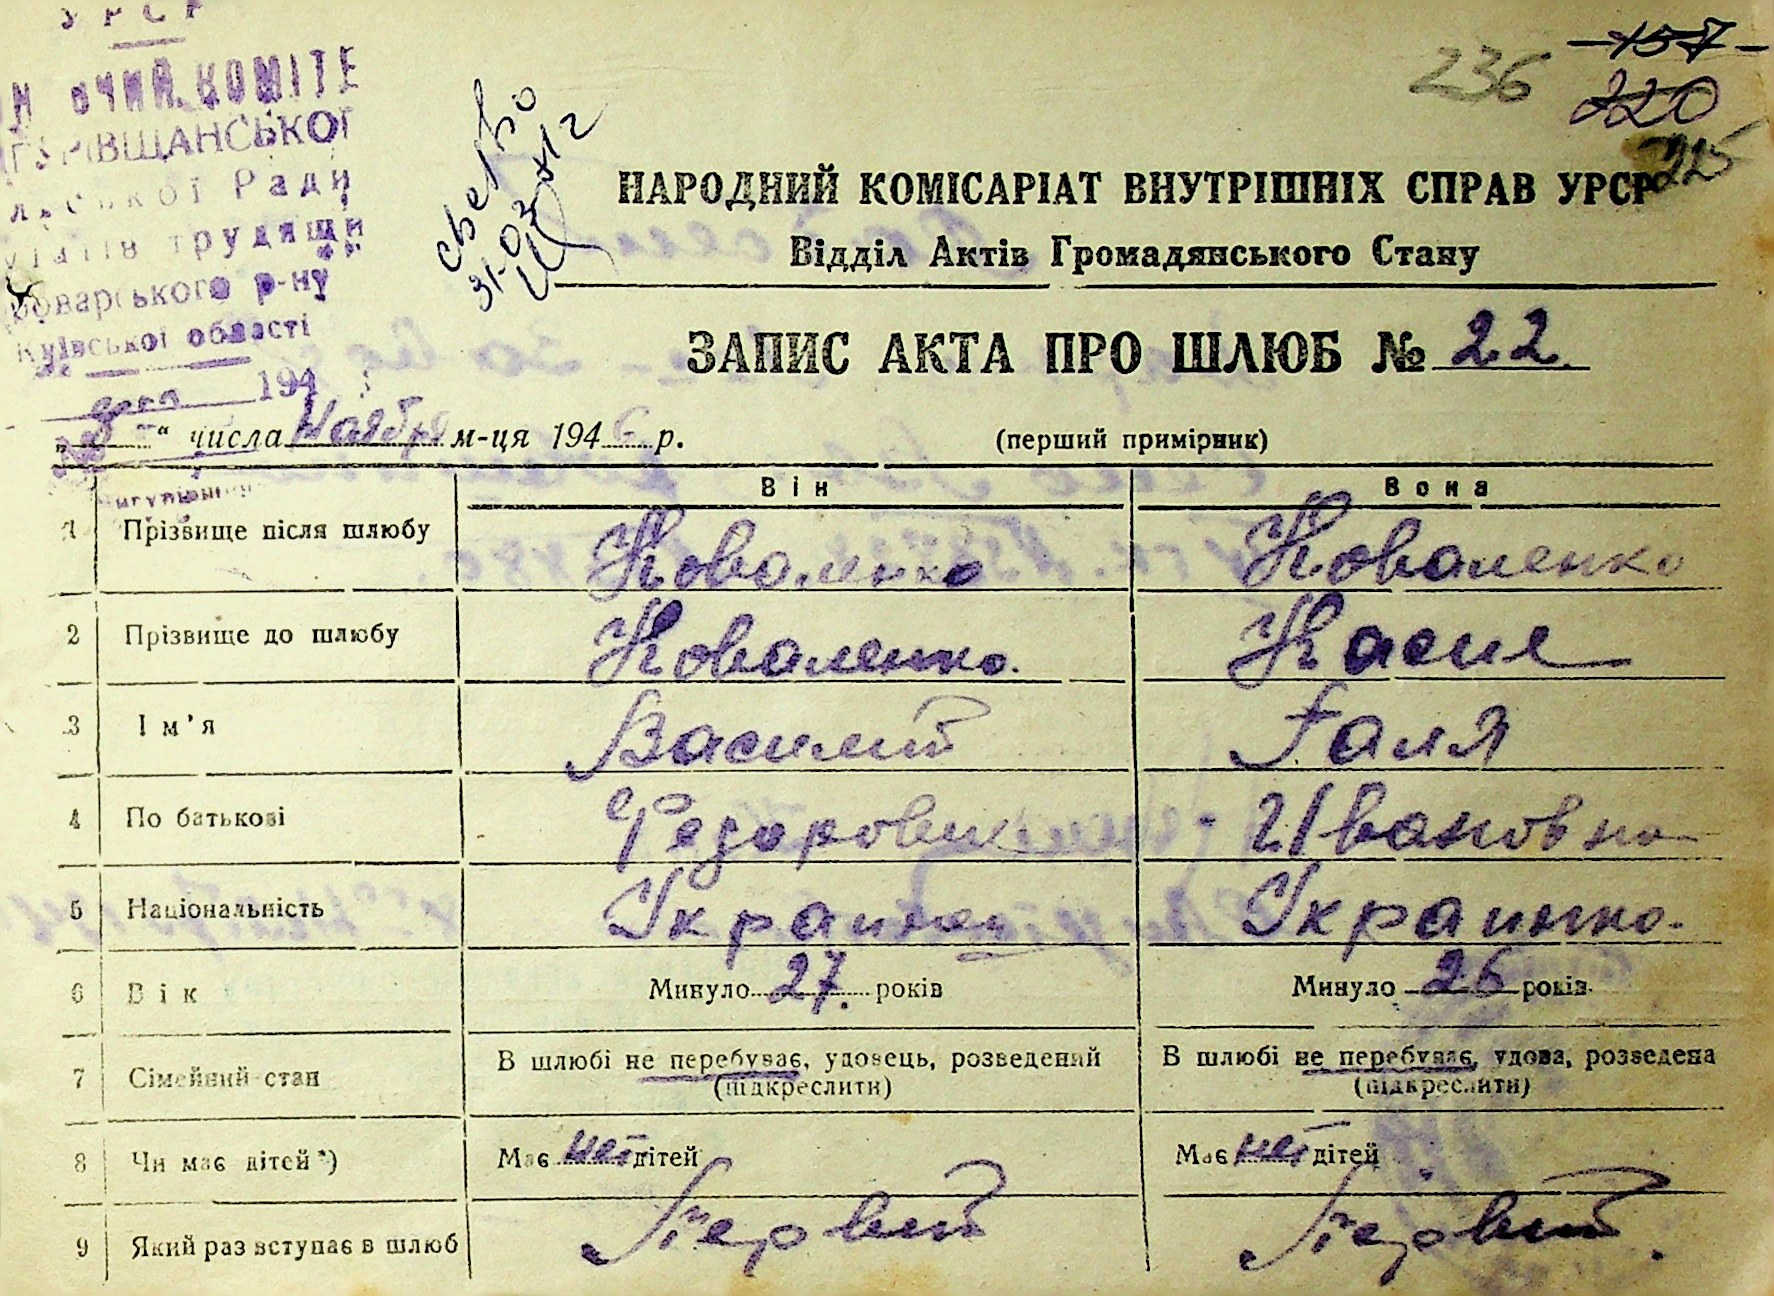 УРСР
КОМІТЕ
Ради
трудящи
р-ну
Київської області
194
236
-157-
220
215
31-03
НАРОДНИЙ КОМІСАРІАТ ВНУТРІШНІХ СПРАВ УРСР
Відділ Актів Громадянського Стану
ЗАПИС АКТА ПРО ШЛЮБ № 22.
„8“ числа Ноября м-ця 1946 р. (перший примірник)
Він Вона
1 Прізвище після шлюбу Коваленко Коваленко
2 Прізвище до шлюбу Коваленко. Касил
3 Ім'я Василий Галя
4 По батькові Федорович Ивановна
5 Національність Украинец Украинка.
6 Вік Минуло 27. років Минуло 26 років
7 Сімейний стан В шлюбі не перебуває, удовець, розведений (підкреслити) В шлюбі не перебуває, удова, розведена (підкреслити)
8 Чи має дітей*) Має нет дітей Має нет дітей
9 Який раз вступає в шлюб Первый Первый.